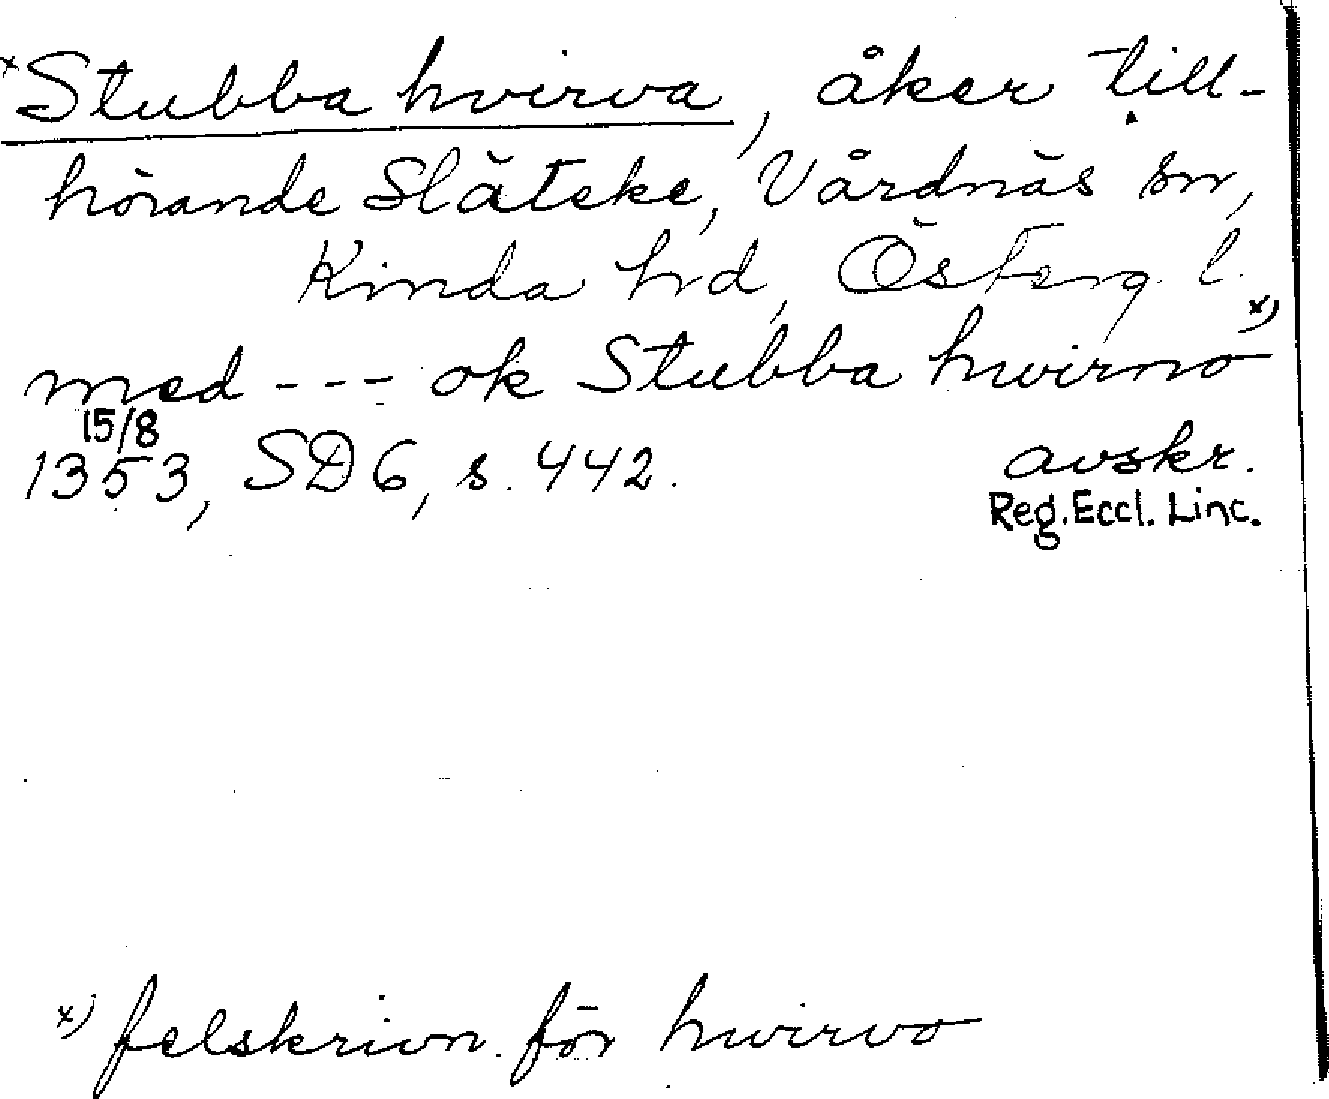 *Stubba hvirva, åker till-
hörande Släteke, Vårdnäs sn,
Kinda hd, Österg. l.
med --- ok Stubba hwirno x)
15/8
1353, SD 6, s. 442. avskr.
Reg. Eccl. Linc.
x) felskrivn. för hwirvo